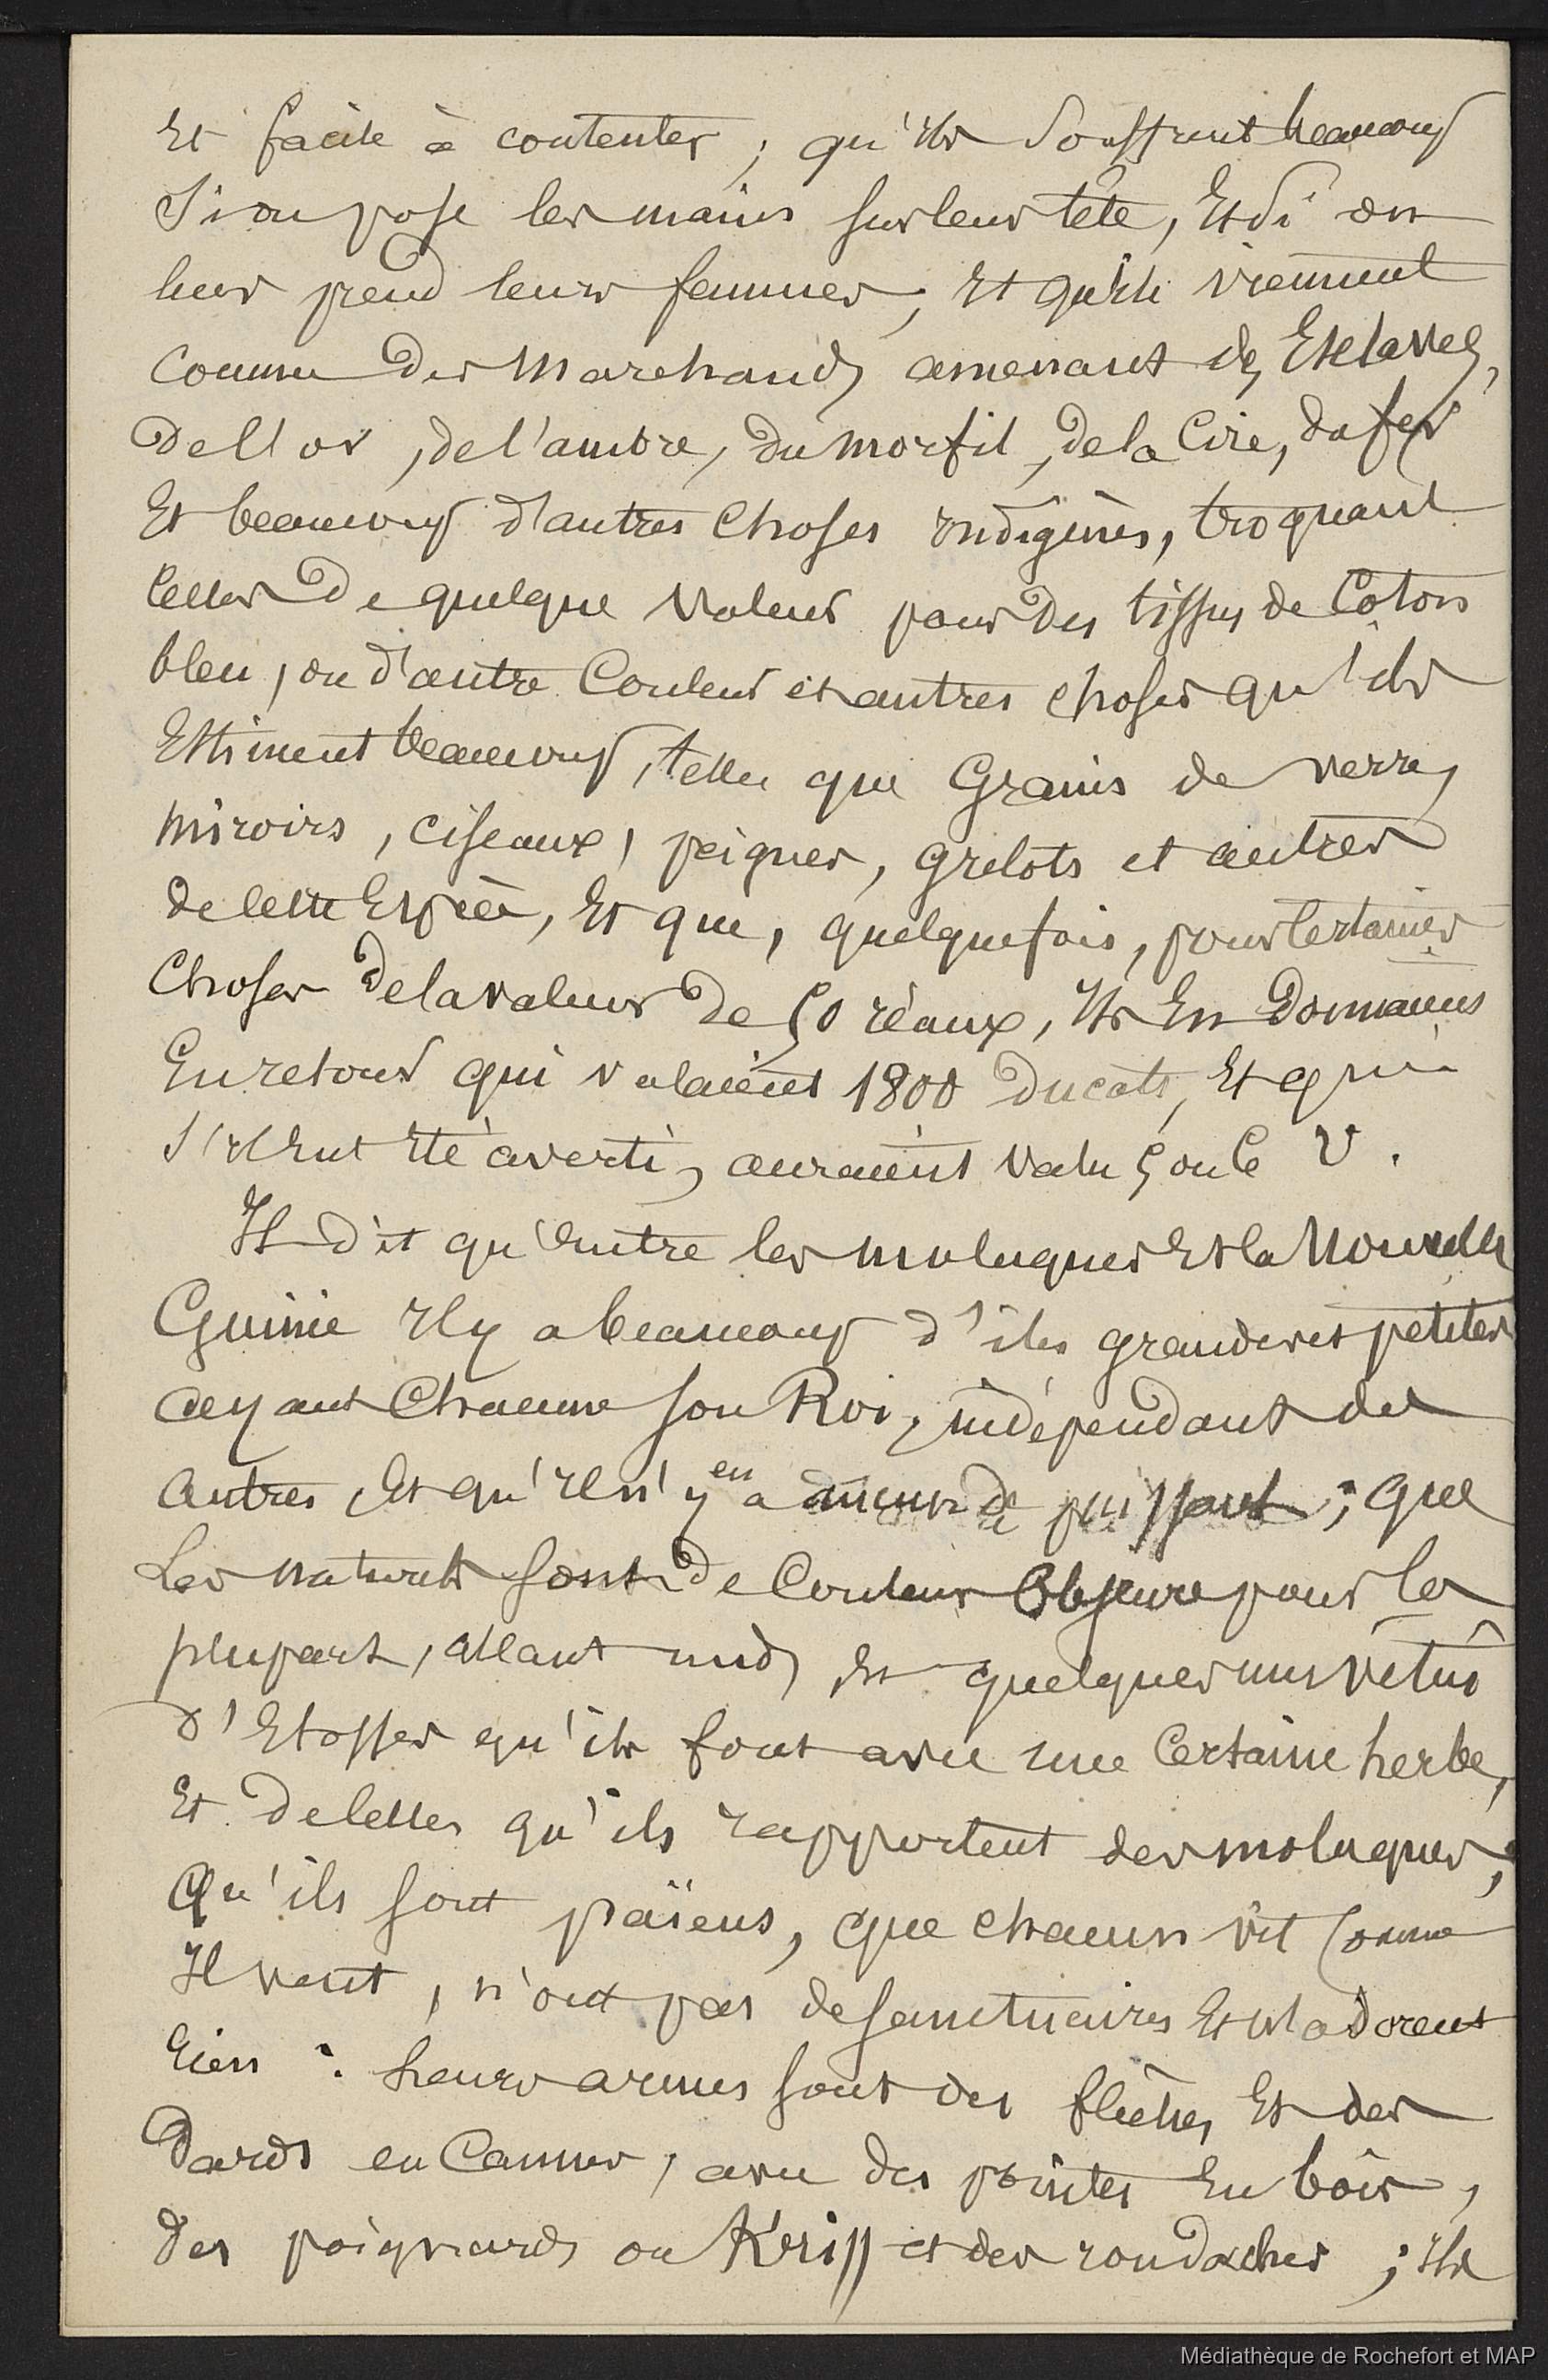 Et facile à contenter ; qu'ils Souffrent beaucoup
Si on pose les mains sur leur tête, Et Si on
leur prend leurs femmes, Et qu'ils viennent
Comme des Marchands amenant des Esclaves,
De l'or, de l'ambre, du Morfil, de la Cire, du fer
Et beaucoup d'autres Choses indigènes, troquant
Celles de quelque Valeur pour des tissus de Coton
bleu, ou d'autre Couleur et autres choses qu'ils
Estiment beaucoup, telles que Grains de verre,
Miroirs, ciseaux, peignes, grelots et autres
de cette Espèce, Et que, quelquefois, pour Certaines
Choses de la valeur de 50 réaux, Ils En
En retour qui valaient 1800 Ducats, Et qui
S'il Eut été averti, auraient valu 5 ou 6 V.
Il dit qu'Entre les Moluques Et la Nouvelle
Guinée Il y a beaucoup d'îles grandes et petites
ayant Chacune son Roi, indépendant des
Autres, Et qu'il n'y en a aucun de puissant ; que
Les naturels sont de Couleur Obscure pour la
plupart, allant nuds, Et quelques uns vêtus
d'Etoffes qu'ils font avec une Certaine herbe,
Et de Celles qu'ils rapportent des Moluques ;
Qu'ils sont païens, que chacun vit Comme
Il veut, n'ont pas de Sanctuaires Et n'adorent
Rien : Leurs armes sont des flèches Et des
Dards en Cannes, avec des pointes En bois,
Des poignards ou Kriss et des rondaches ; Ils
Médiathèque de Rochefort et MAP